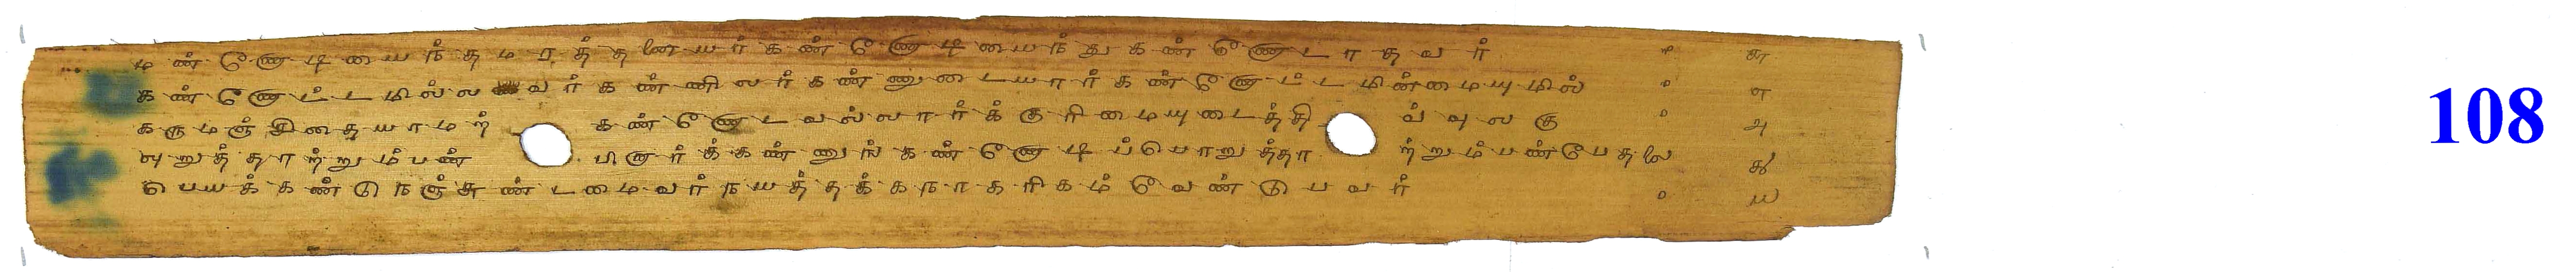 மண்ணோடியைந்தமரத்தனையர்கண்ணோடியைந்துகண்ணோடாதவர் ௬
கண்ணோட்டமில்லவர்கண்ணிலர்கண்ணுடையார்கண்ணோட்டமின்மையுமில் ௭
கருமஞ்சிதையாமற் கண்ணோடவல்லார்க்குரிமையுடைத்தி வ்வுலகு ௮
ஒறுத்தாற்றும்பண் பினார்க்கண்ணுங்கண்ணோடிப்பொறுத்தா ற்றும்பண்பேதலை ௯
பெயக்கண்டுநஞ்சுண்டமைவர்நயத்தக்கநாகரிகம் வேண்டுபவர் ௰
108